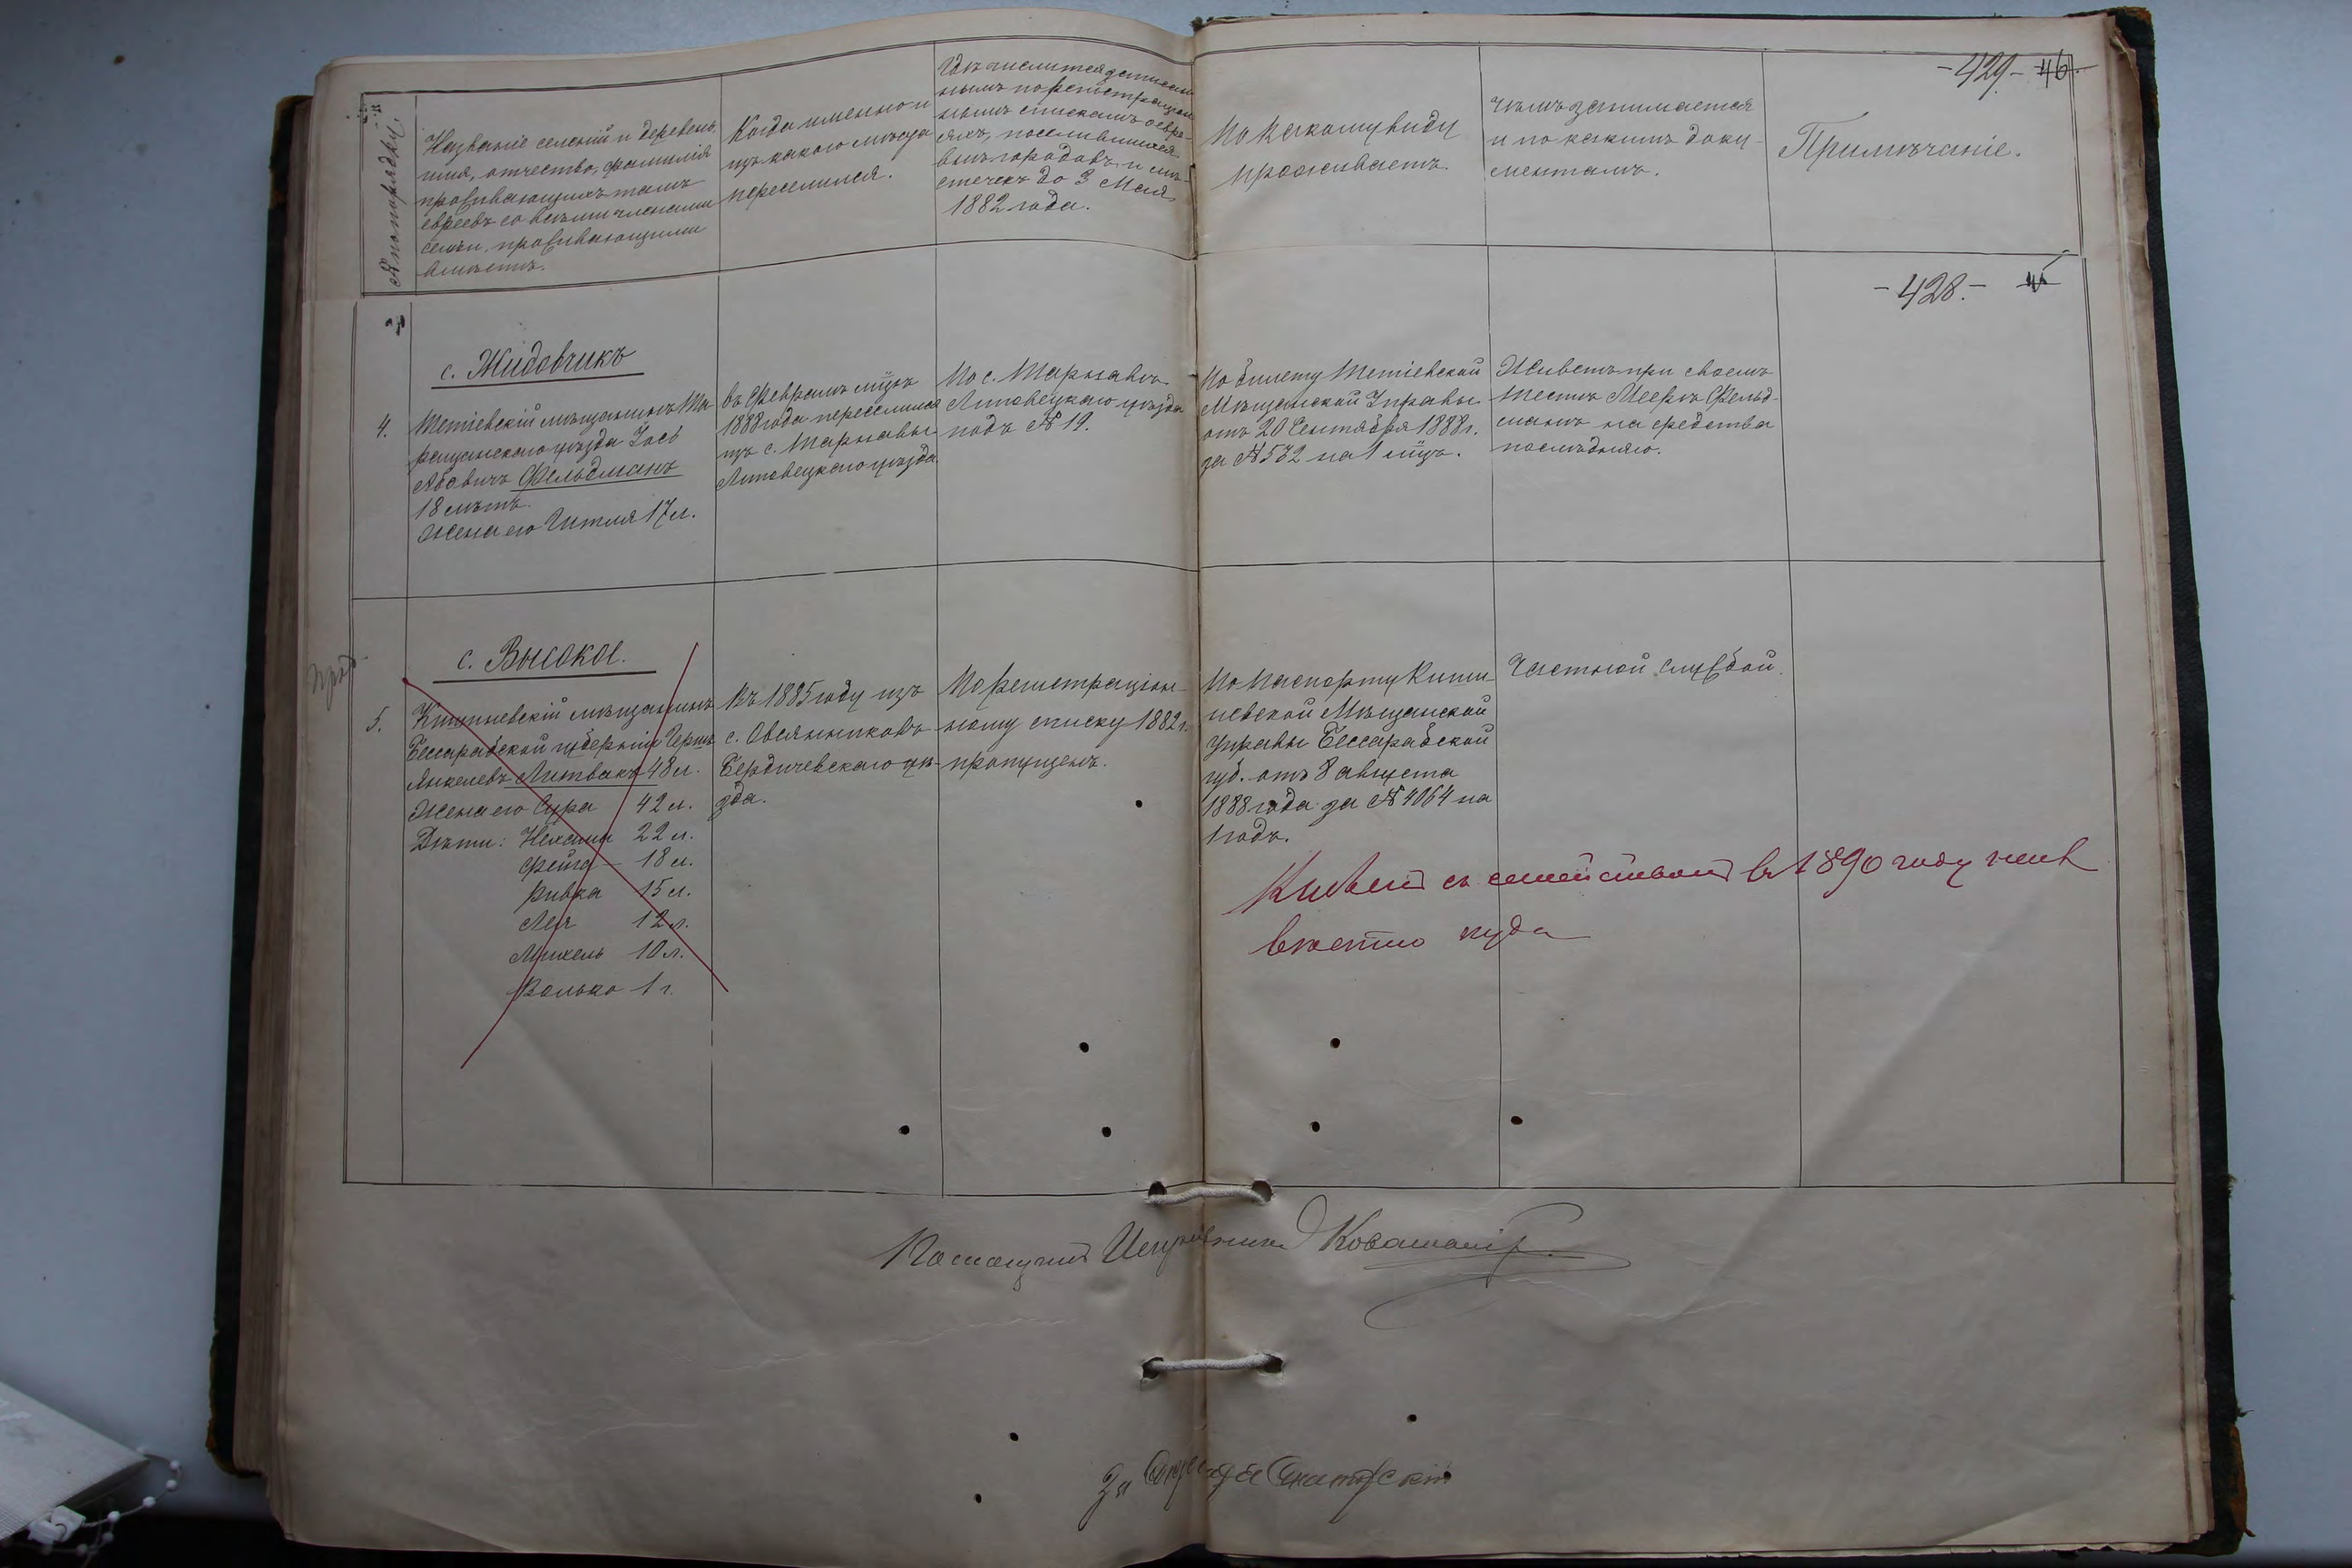 № по порядку.
Названіе селеній и деревень,
имя, отчество, фамилія
проживающихъ тамъ
евреевъ со всѣми членами
семьи, проживающими
вмѣстѣ.
Когда именно и
изъ какого мѣста
переселился.
Гдѣ числится записан
нымъ по регистраціон
нымъ спискамъ о евре-
яхъ, поселившихся
внѣ городовъ и мѣ-
стечекъ до 3 Мая
1882 года.
По какому виду
проживаетъ.
Чѣмъ занимается
и по какимъ доку-
ментамъ.
Примѣчаніе.
-429.-
-428.-
с. Жидовчикъ
4.
Тетіевскій мѣщанинъ Та
ращанскаго уѣзда Іось
Абовичъ Фельдманъ
18 лѣтъ.
Жена его Гитля 17 л.
въ Февралѣ мцѣ
1888 года переселился
изъ с. Тарнавы
Липовецкаго уѣзда
По с. Тарнавѣ
Липовецкаго уѣзда
подъ № 19.
По билету Тетіевской
Мѣщанской Управы
отъ 20 Сентября 1888 г.
за № 532 на 1 мцъ.
Живетъ при своемъ
тестѣ Меерѣ Фельд-
манѣ на средства
послѣдняго.
с. Высокое.
5.
Кишиневскій мѣщанинъ
Бессарабской губерніи Герш
Янкелевъ Литвакъ 48 л.
Жена его Сура 42 л.
Дѣти: Нехама 22 л.
Фейга - 18 л.
Ривка 15 л.
Лея 12 л.
Михель 10 л.
Волько 1 г.
Въ 1885 году изъ
с. Овсянниковъ
Бердичевскаго уѣ-
зда.
По регистраціон-
ному списку 1882 г.
пропущенъ.
По паспорту Киши
невской Мѣщанской
Управы Бессарабской
губ. отъ 8 августа
1888 года за № 4064 на
1 годъ.
Частной службой.
съ семействомъ въ 1890 году неиз
вѣстно куда
Помощникъ Исправника
За